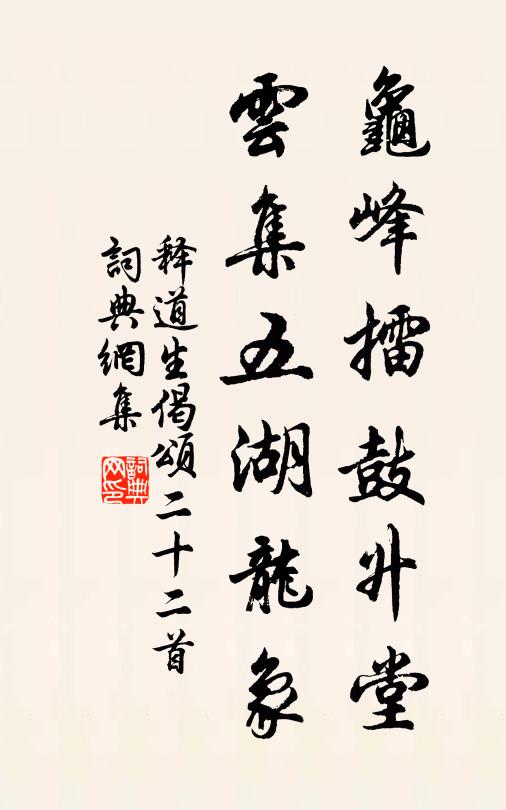 龜峰擂鼓升堂
雲集五湖龍象
释道生偈頌二十二首
詞典網集
詞典网印